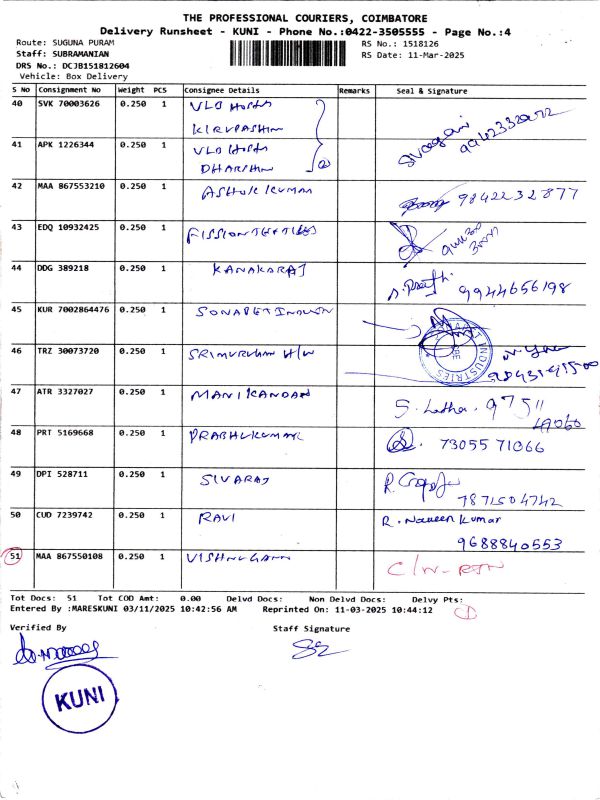 THE PROFESSIONAL COURIERS, COIMBATORE
Delivery Runsheet - KUNI - Phone No.:0422-3505555 - Page No.:4
Route: SUGUNA PURAM RS No.: 1518126
Staff: SUBRAMANIAN RS Date: 11-Mar-2025
DRS No.: DCJB151812604
Vehicle: Box Delivery
S No Consignment No Weight PCS Consignee Details Remarks Seal & Signature
40 SVK 70003626 0.250 1 VLB
99423320
41 APK 1226344 0.250 1 VLB
DHARSHIN
42 MAA 867553210 0.250 1 ASHOK KUMAR 9842232877
43 EDQ 10932425 0.250 1
44 DDG 389218 0.250 1 KANAKARAJ 9944656198
45 KUR 7002864476 0.250 1
46 TRZ 30073720 0.250 1 SRIMURUGAN H/W
INDUSTRIES
47 ATR 3327027 0.250 1 MANIKANDAN S. Latha. 97511
48 PRT 5169668 0.250 1 PRABHUKUMAR 7305571066
49 DPI 528711 0.250 1 SIVARAJ
7871504742
50 CUD 7239742 0.250 1 RAVI R. Naveen Kumar
9688840553
51 MAA 867550108 0.250 1 C/N - RTN
Tot Docs: 51 Tot COD Amt: 0.00 Delvd Docs: Non Delvd Docs: Delvy Pts:
Entered By :MARESKUNI 03/11/2025 10:42:56 AM Reprinted On: 11-03-2025 10:44:12
Verified By Staff Signature
KUNI